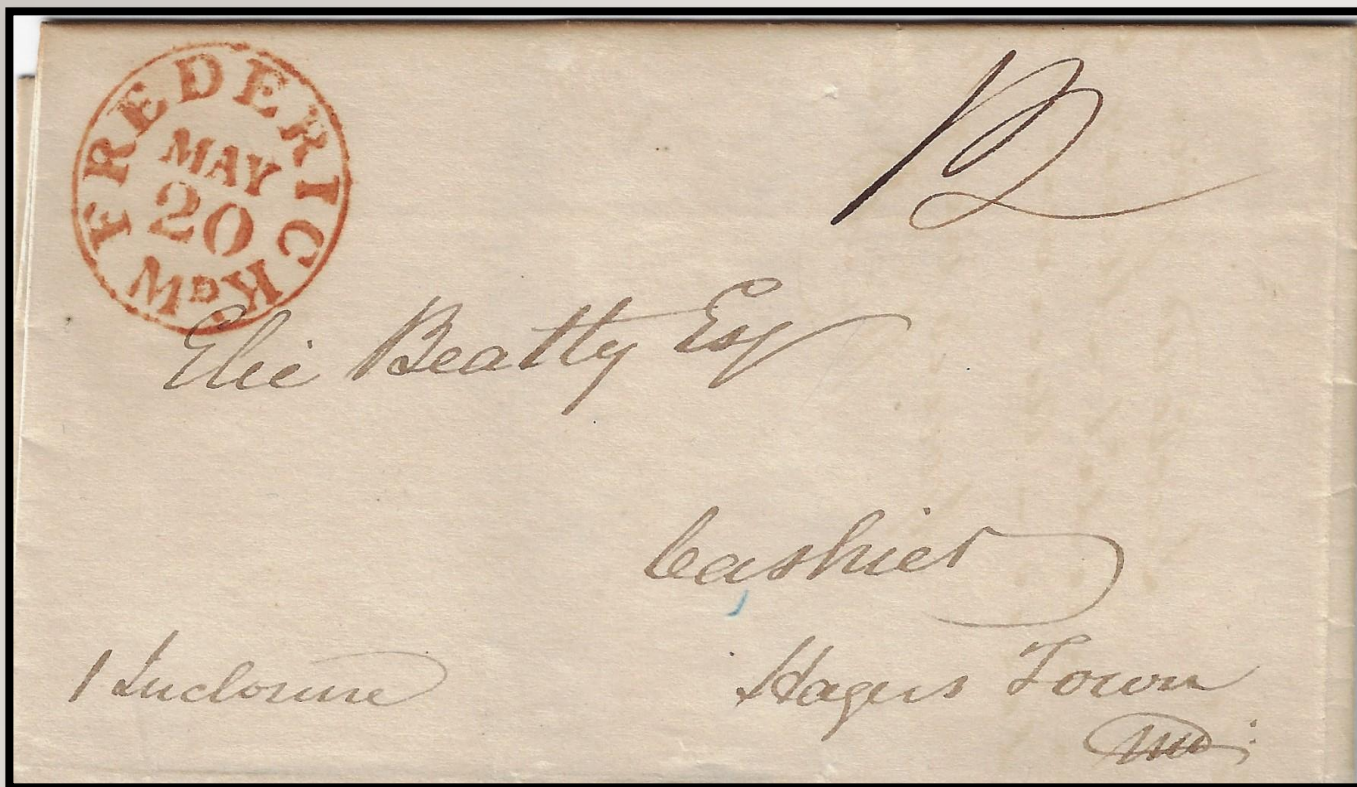 FREDERICK Md
MAY
20
12
Elie Beatty Esq
Cashier
1 Inclosure
Hagers Town
Md